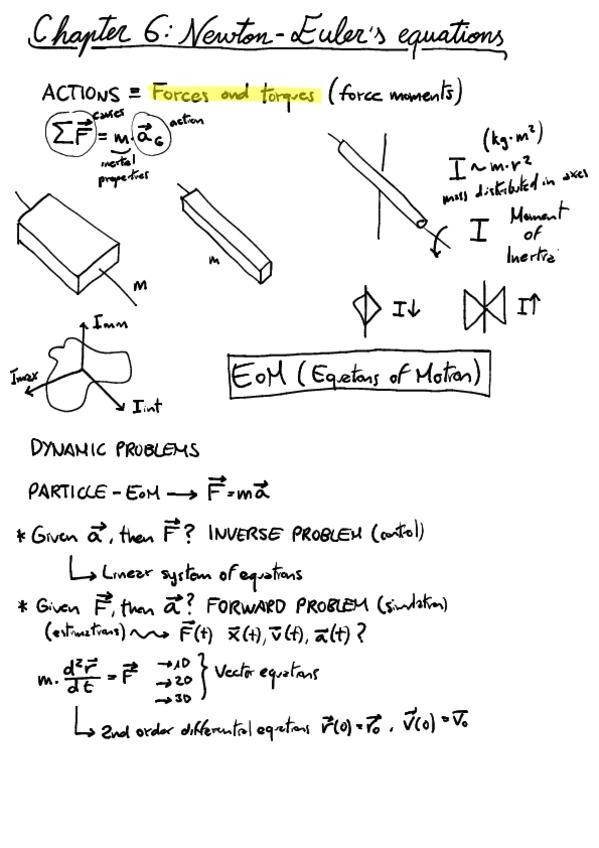 Chapter 6: Newton-Euler's equations
ACTIONS ≡ Forces and torques (force moments)
causes
ΣF⃗ = m·a⃗_G action
inertial
properties
(kg·m²)
I ~ m·r²
mass distributed in axes
I Moment
of
Inertia
m
m
I↓
I↑
Imin
Imax
Iint
EoM (Equations of Motion)
DYNAMIC PROBLEMS
PARTICLE - EoM → F⃗ = ma⃗
* Given a⃗, then F⃗? INVERSE PROBLEM (control)
↳ Linear system of equations
* Given F⃗, then a⃗? FORWARD PROBLEM (simulation)
(estimations) ⟿ F⃗(t) x⃗(t), v⃗(t), a⃗(t)?
m·d²r⃗/dt = F⃗ →1D →2D →3D } Vector equations
↳ 2nd order differential equations r⃗(0)=r⃗₀, v⃗(0)=v⃗₀